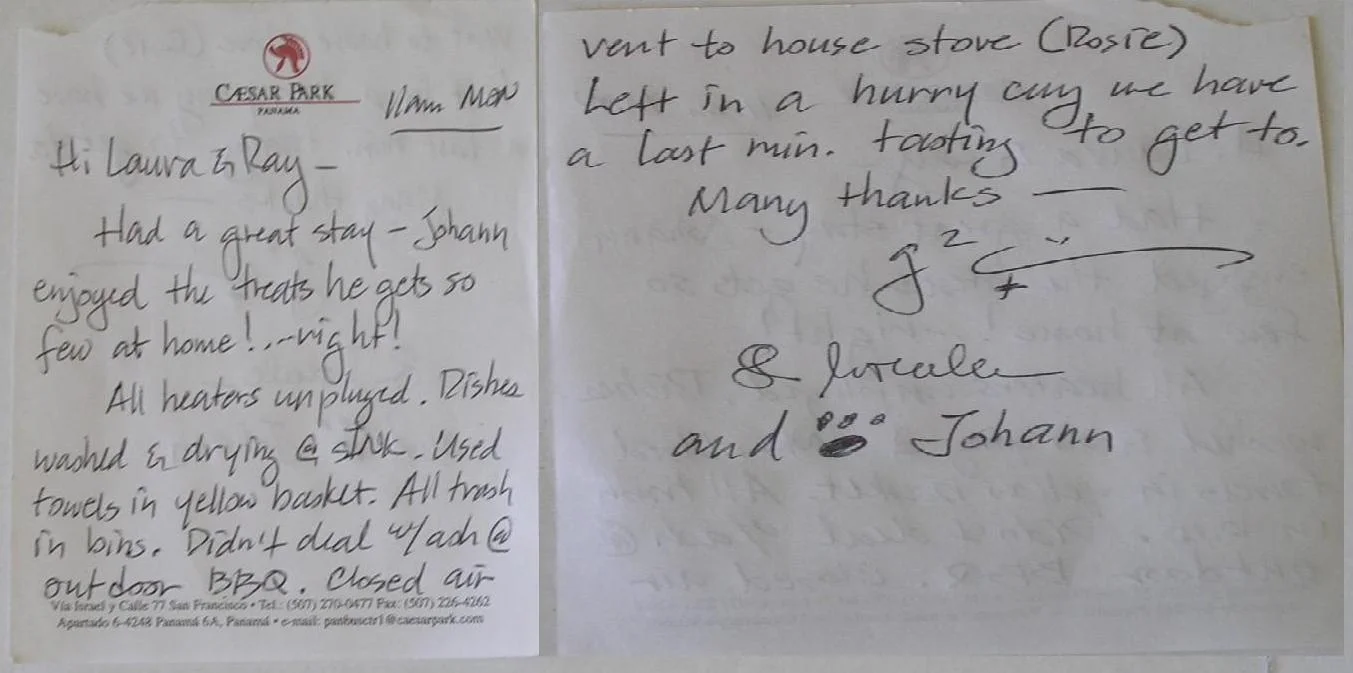 CÆSAR PARK
PANAMA
11am MON
Hi Laura & Ray –
Had a great stay – Johann
enjoyed the treats he gets so
few at home! ...right!
All heaters unplugged. Dishes
washed & drying @ sink. Used
towels in yellow basket. All trash
in bins. Didn't deal w/ash @
outdoor BBQ. Closed air
Vía Israel y Calle 77 San Francisco • Tel.: (507) 270-0477 Fax: (507) 226-4262
Apartado 6-4248 Panamá 6A, Panamá • e-mail: panbusctr1@caesarpark.com
vent to house stove (Rosie)
Left in a hurry cuz we have
a last min. tasting to get to.
Many thanks —
J²
&
and Johann